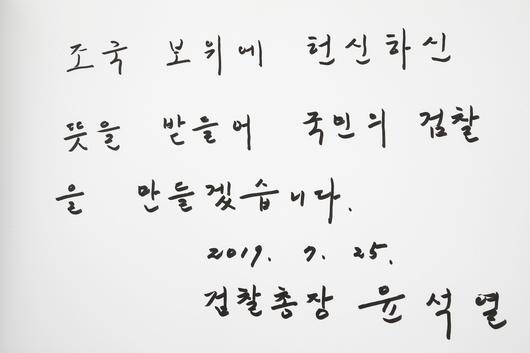 조국 보위에 헌신하신
뜻을 받들어 국민의 검찰
을 만들겠습니다.
2019. 7. 25.
검찰총장 윤석열